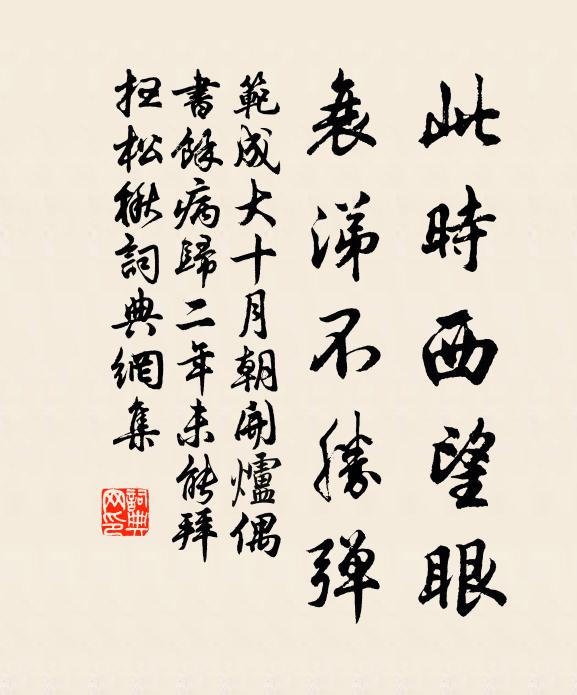 此時西望眼
衰涕不勝彈
範成大十月朝開爐偶
書餘病歸二年未能拜
掃松楸詞典網集
詞典
网印